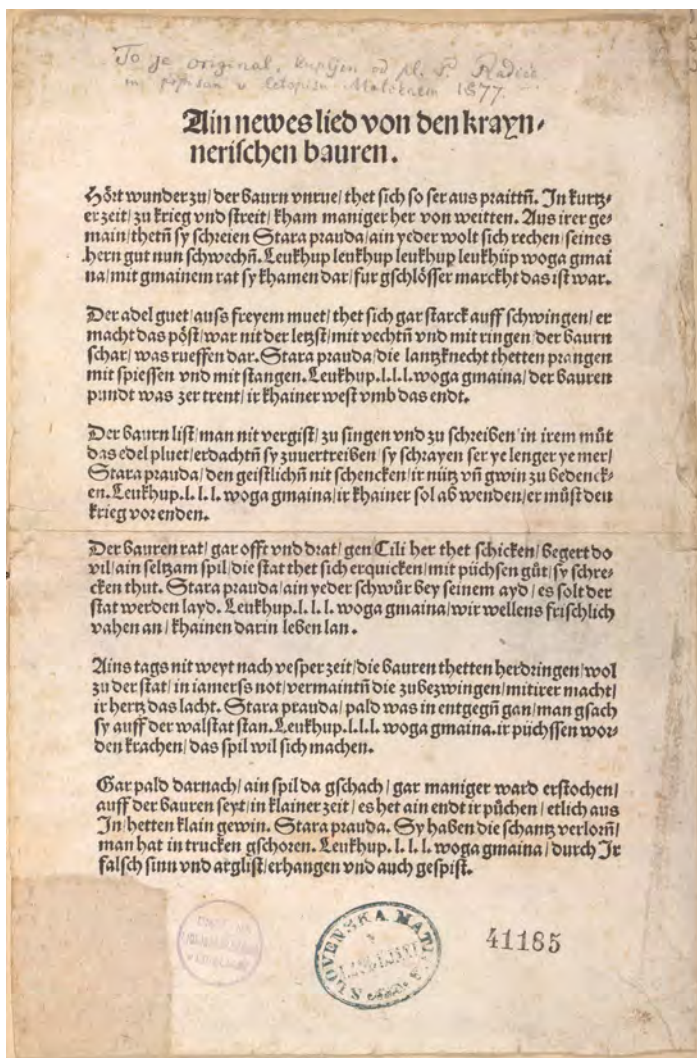 To je original, kupljen od pl. P. Radiće
in popisan v letopisu Matičnem 1877.
Ain newes lied von den krayn⸗
nerischen bauren.
Hört wunder zu/ der baurn vnrue/ thet sich so ser aus praittñ. In kurtz⸗
er zeit/ zu krieg vnd streit/ kham maniger her von weitten. Aus irer ge⸗
main/ thetñ sy schreien Stara prauda/ ain yeder wolt sich rechen/ seines
hern gut nun schwechñ. Leukhup leukhup leukhup leukhup woga gmai
na/ mit gmainem rat sy khamen dar/ fur gschlösser marckht das ist war.
Der adel guet/ auss freyem muet/ thet sich gar starck auff schwingen/ er
macht das pöst/ war nit der letzst/ mit vechtñ vnd mit ringen/ der baurn
schar/ was rueffen dar. Stara prauda/ die lantzknecht thetten prangen
mit spiessen vnd mit stangen. Leukhup.l.l.l. woga gmaina/ der bauren
pundt was zer trent/ ir khainer west vmb das endt.
Der baurn list/ man nit vergist/ zu singen vnd zu schreiben/ in irem müt
das edel pluet/ erdachtñ sy zuuertreiben/ sy schrayen ser ye lenger ye mer/
Stara prauda/ den geistlichñ nit schencken/ ir nütz vñ gwin zu bedenck⸗
en. Leukhup.l. l. l. woga gmaina/ ir khainer sol ab wenden/ er müst den
krieg vor enden.
Der bauren rat/ gar offt vnd drat/ gen Cili her thet schicken/ begert do
vil/ ain seltzam spil/ die stat thet sich erquicken/ mit püchsen güt/ sy schre⸗
cken thut. Stara prauda/ ain yeder schwür bey seinem ayd/ es solt der
stat werden layd. Leukhup.l. l. l. woga gmaina/ wir wellens frischlich
vahen an/ khainen darin leben lan.
Ains tags nit weyt nach vesper zeit/ die bauren thetten herdringen/ wol
zu der stat/ in iamerss not/ vermaintñ die zubezwingen/ mit irer macht/
ir hertz das lacht. Stara prauda/ pald was in entgegñ gan/ man gsach
sy auff der walstat stan. Leukhup.l.l.l. woga gmaina. ir püchssen wor⸗
den krachen/ das spil wil sich machen.
Gar pald darnach/ ain spil da gschach/ gar maniger ward erstochen/
auff der bauren seyt/ in klainer zeit/ es het ain endt ir püchen/ etlich aus
In/ hetten klain gewin. Stara prauda. Sy haben die schantz verlorñ/
man hat in trucken gschoren. Leukhup. l. l. l. woga gmaina/ durch Ir
falsch sinn vnd arglist/ erhangen vnd auch gespist.
SLOVENSKA MATICA
V
LJUBLJANI
41185